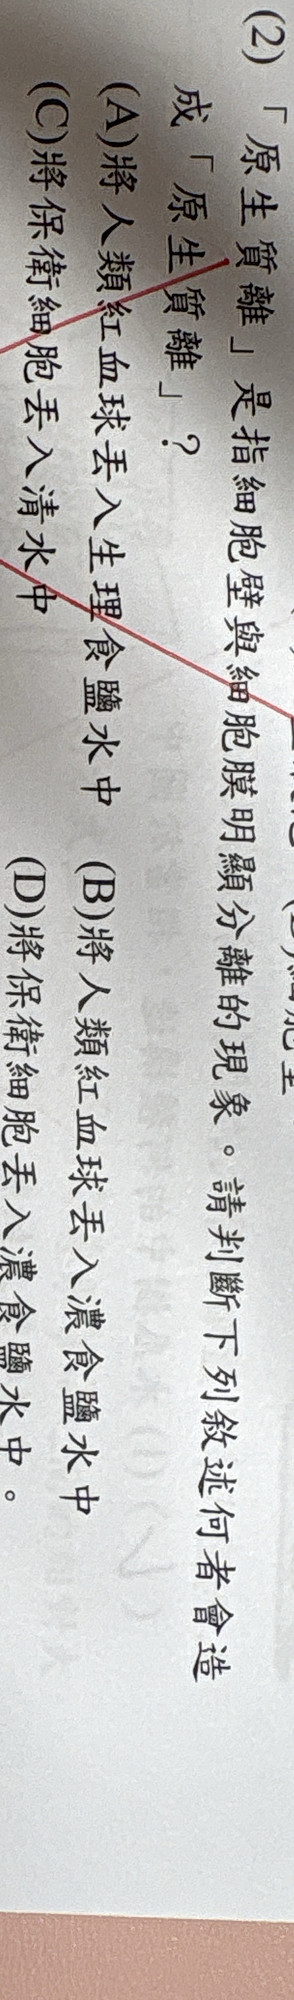 (2)「原生質離」是指細胞壁與細胞膜明顯分離的現象。請判斷下列敘述何者會造
成「原生質離」?
(A)將人類紅血球丟入生理食鹽水中 (B)將人類紅血球丟入濃食鹽水中
(C)將保衛細胞丟入清水中 (D)將保衛細胞丟入濃食鹽水中。